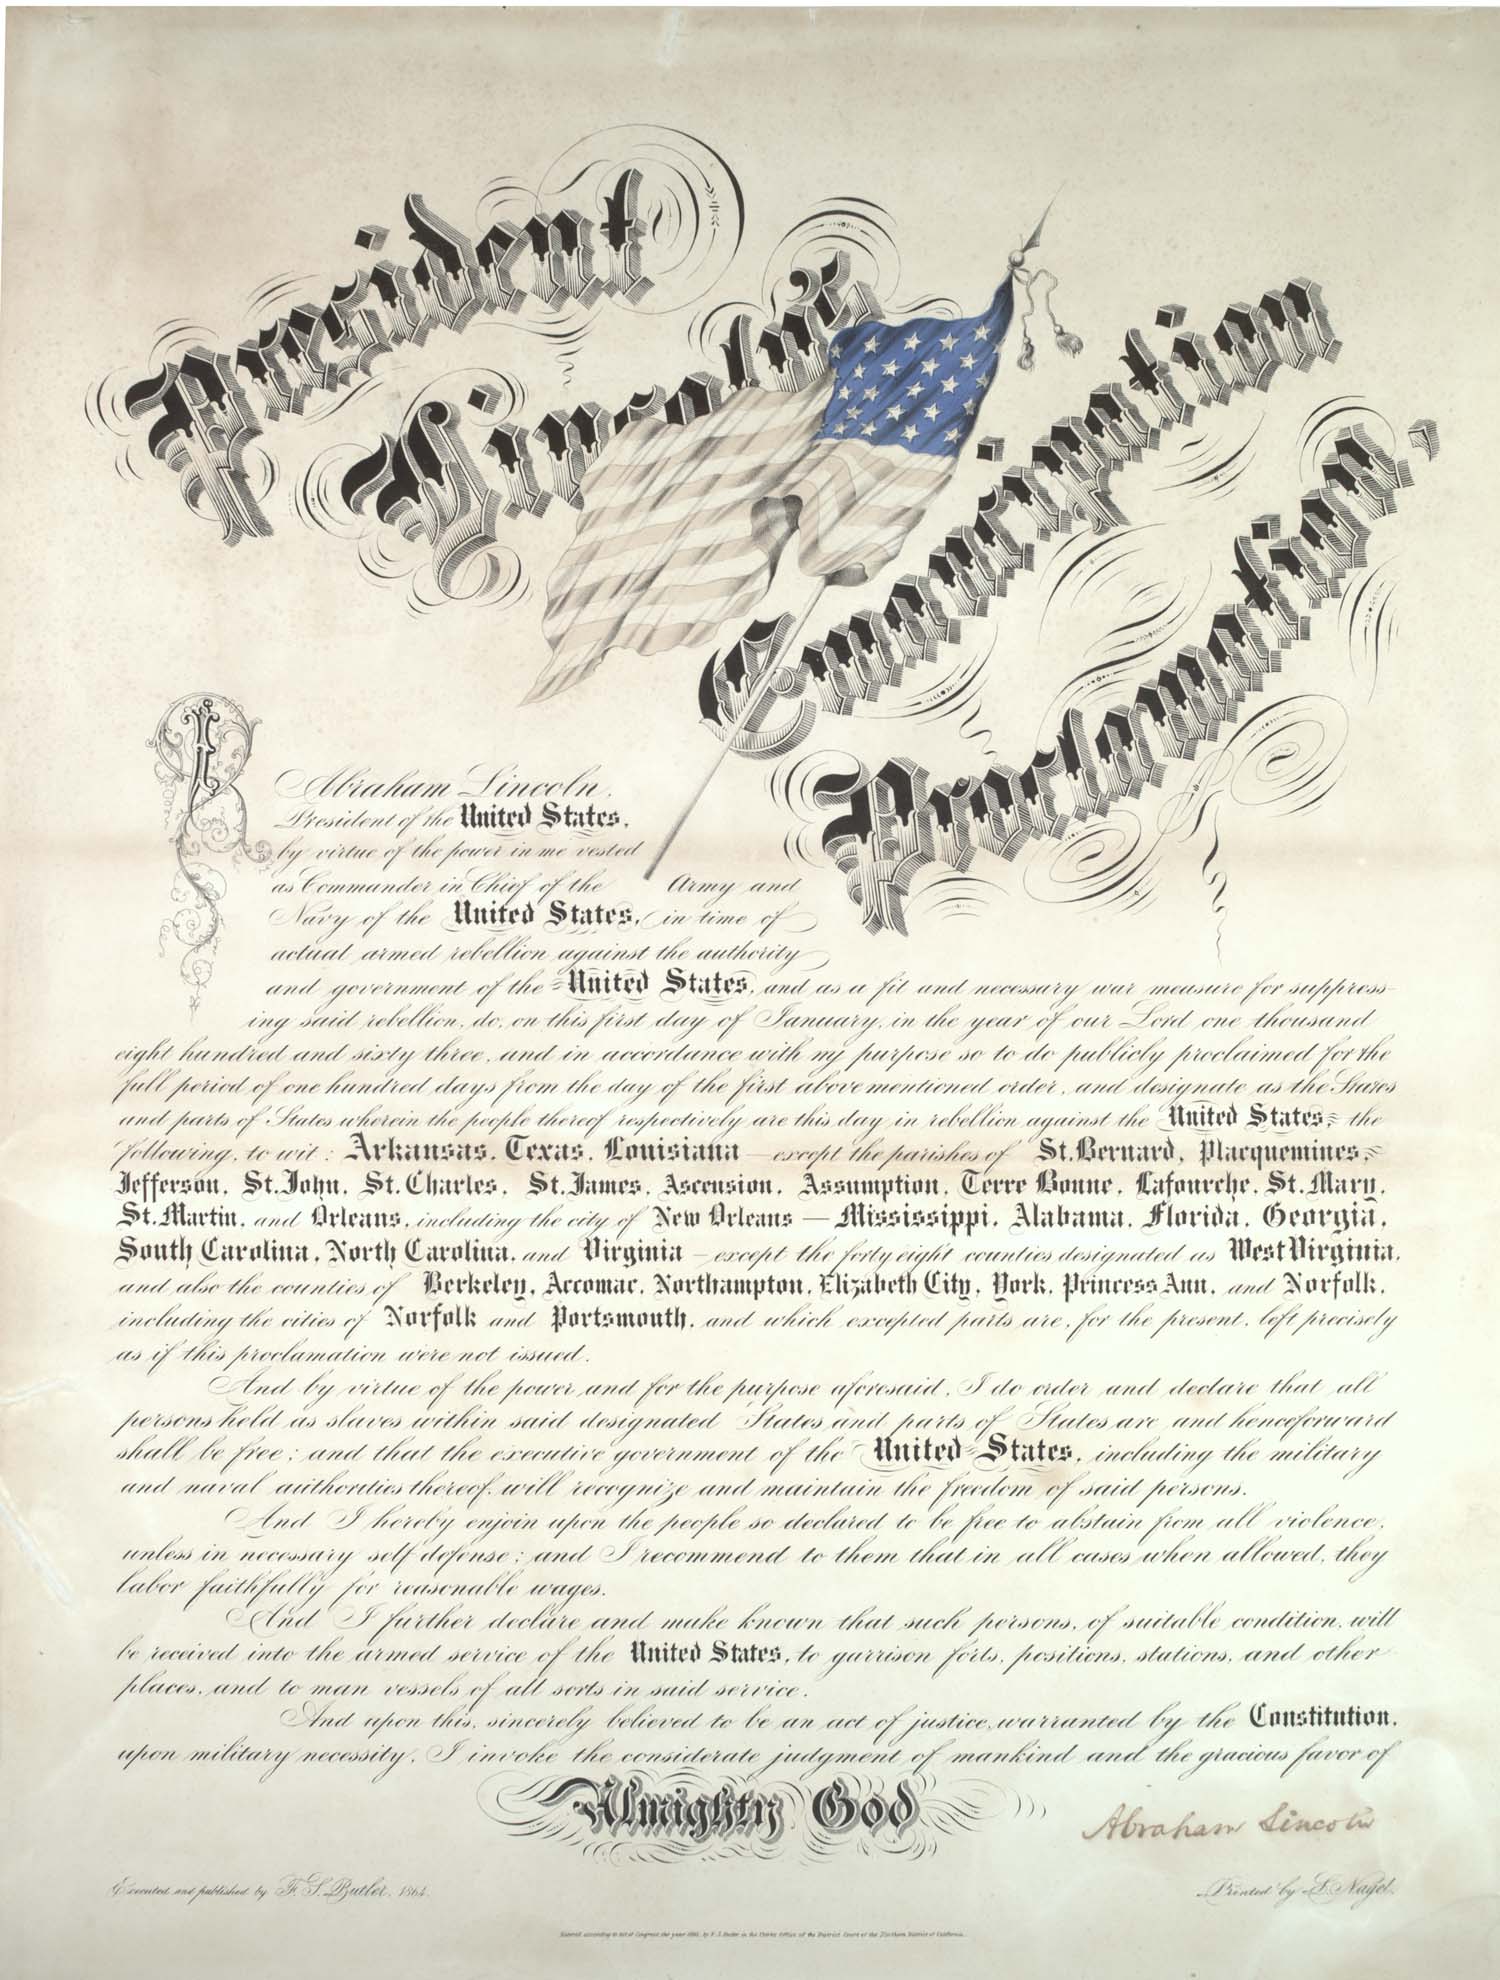 President
Lincoln's
Emancipation
Proclamation,
I
Abraham Lincoln,
President of the United States,
by virtue of the power in me vested
as Commander in Chief of the Army and
Navy of the United States, in time of
actual armed rebellion against the authority
and government of the United States, and as a fit and necessary war measure for suppress-
ing said rebellion, do, on this first day of January, in the year of our Lord one thousand
eight hundred and sixty three, and in accordance with my purpose so to do publicly proclaimed for the
full period of one hundred days from the day of the first above mentioned order, and designate as the States
and parts of States wherein the people thereof respectively are this day in rebellion against the United States, the
following, to wit: Arkansas, Texas, Louisiana — except the parishes of St. Bernard, Placquemines,
Jefferson, St. John, St. Charles, St. James, Ascension, Assumption, Terre Bonne, Lafourche, St. Mary,
St. Martin, and Orleans, including the city of New Orleans — Mississippi, Alabama, Florida, Georgia,
South Carolina, North Carolina, and Virginia — except the forty eight counties designated as West Virginia,
and also the counties of Berkeley, Accomac, Northampton, Elizabeth City, York, Princess Ann, and Norfolk,
including the cities of Norfolk and Portsmouth, and which excepted parts are, for the present, left precisely
as if this proclamation were not issued.
And by virtue of the power and for the purpose aforesaid, I do order and declare that all
persons held as slaves within said designated States and parts of States are and henceforward
shall be free; and that the executive government of the United States, including the military
and naval authorities thereof, will recognize and maintain the freedom of said persons.
And I hereby enjoin upon the people so declared to be free to abstain from all violence,
unless in necessary self defense; and I recommend to them that in all cases when allowed, they
labor faithfully for reasonable wages.
And I further declare and make known that such persons, of suitable condition, will
be received into the armed service of the United States, to garrison forts, positions, stations, and other
places, and to man vessels of all sorts in said service.
And upon this, sincerely believed to be an act of justice, warranted by the Constitution,
upon military necessity, I invoke the considerate judgment of mankind and the gracious favor of
Almighty God
Abraham Lincoln
Executed and published by F. S. Butler, 1864.
Printed by L. Nagel.
Entered according to act of Congress the year 1864, by F. S. Butler in the Clerks Office of the District Court of the Northern District of California.